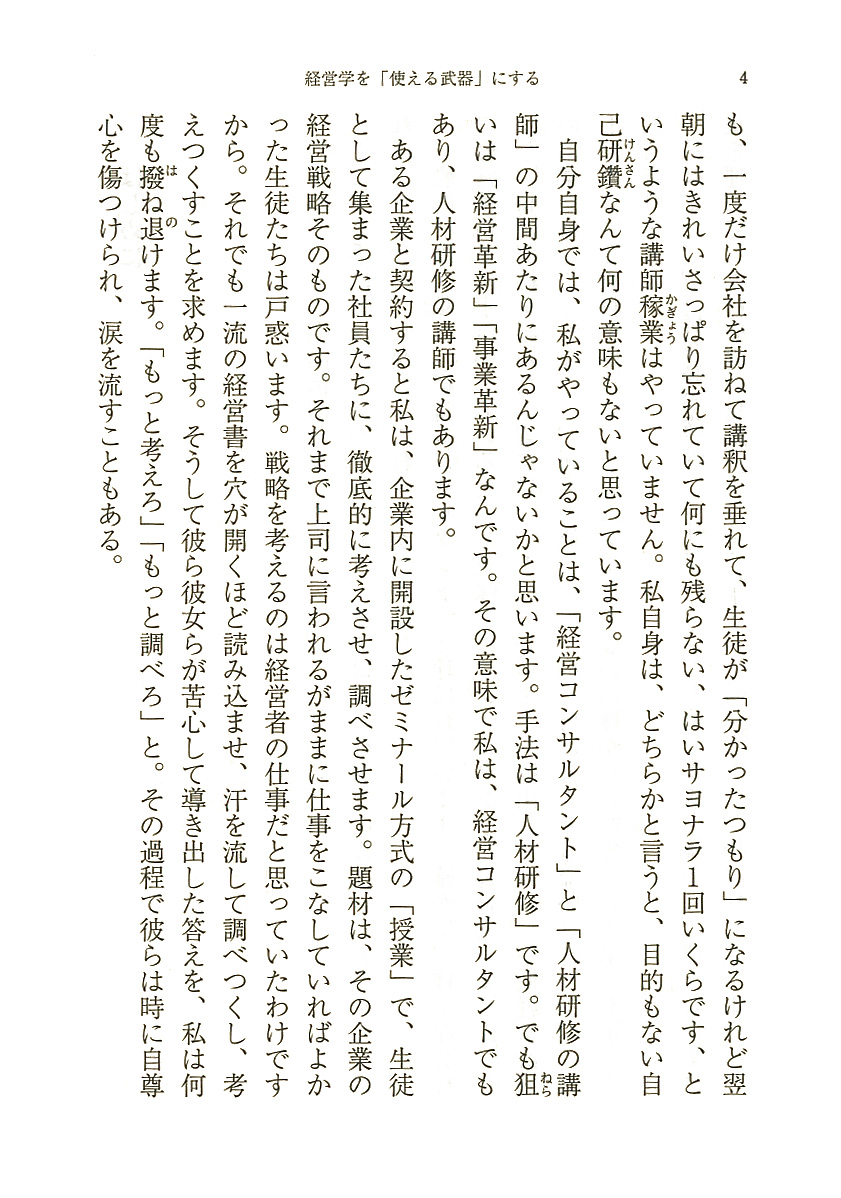 経営学を「使える武器」にする
4
も、一度だけ会社を訪ねて講釈を垂れて、生徒が「分かったつもり」になるけれど翌
朝にはきれいさっぱり忘れていて何にも残らない、はいサヨナラ1回いくらです、と
いうような講師稼業はやっていません。私自身は、どちらかと言うと、目的もない自
かぎょう
己研鑽なんて何の意味もないと思っています。
けんさん
自分自身では、私がやっていることは、「経営コンサルタント」と「人材研修の講
師」の中間あたりにあるんじゃないかと思います。手法は「人材研修」です。でも狙
ねら
いは「経営革新」「事業革新」なんです。その意味で私は、経営コンサルタントでも
あり、人材研修の講師でもあります。
ある企業と契約すると私は、企業内に開設したゼミナール方式の「授業」で、生徒
として集まった社員たちに、徹底的に考えさせ、調べさせます。題材は、その企業の
経営戦略そのものです。それまで上司に言われるがままに仕事をこなしていればよか
った生徒たちは戸惑います。戦略を考えるのは経営者の仕事だと思っていたわけです
から。それでも一流の経営書を穴が開くほど読み込ませ、汗を流して調べつくし、考
えつくすことを求めます。そうして彼ら彼女らが苦心して導き出した答えを、私は何
度も撥ね退けます。「もっと考えろ」「もっと調べろ」と。その過程で彼らは時に自尊
は の
心を傷つけられ、涙を流すこともある。